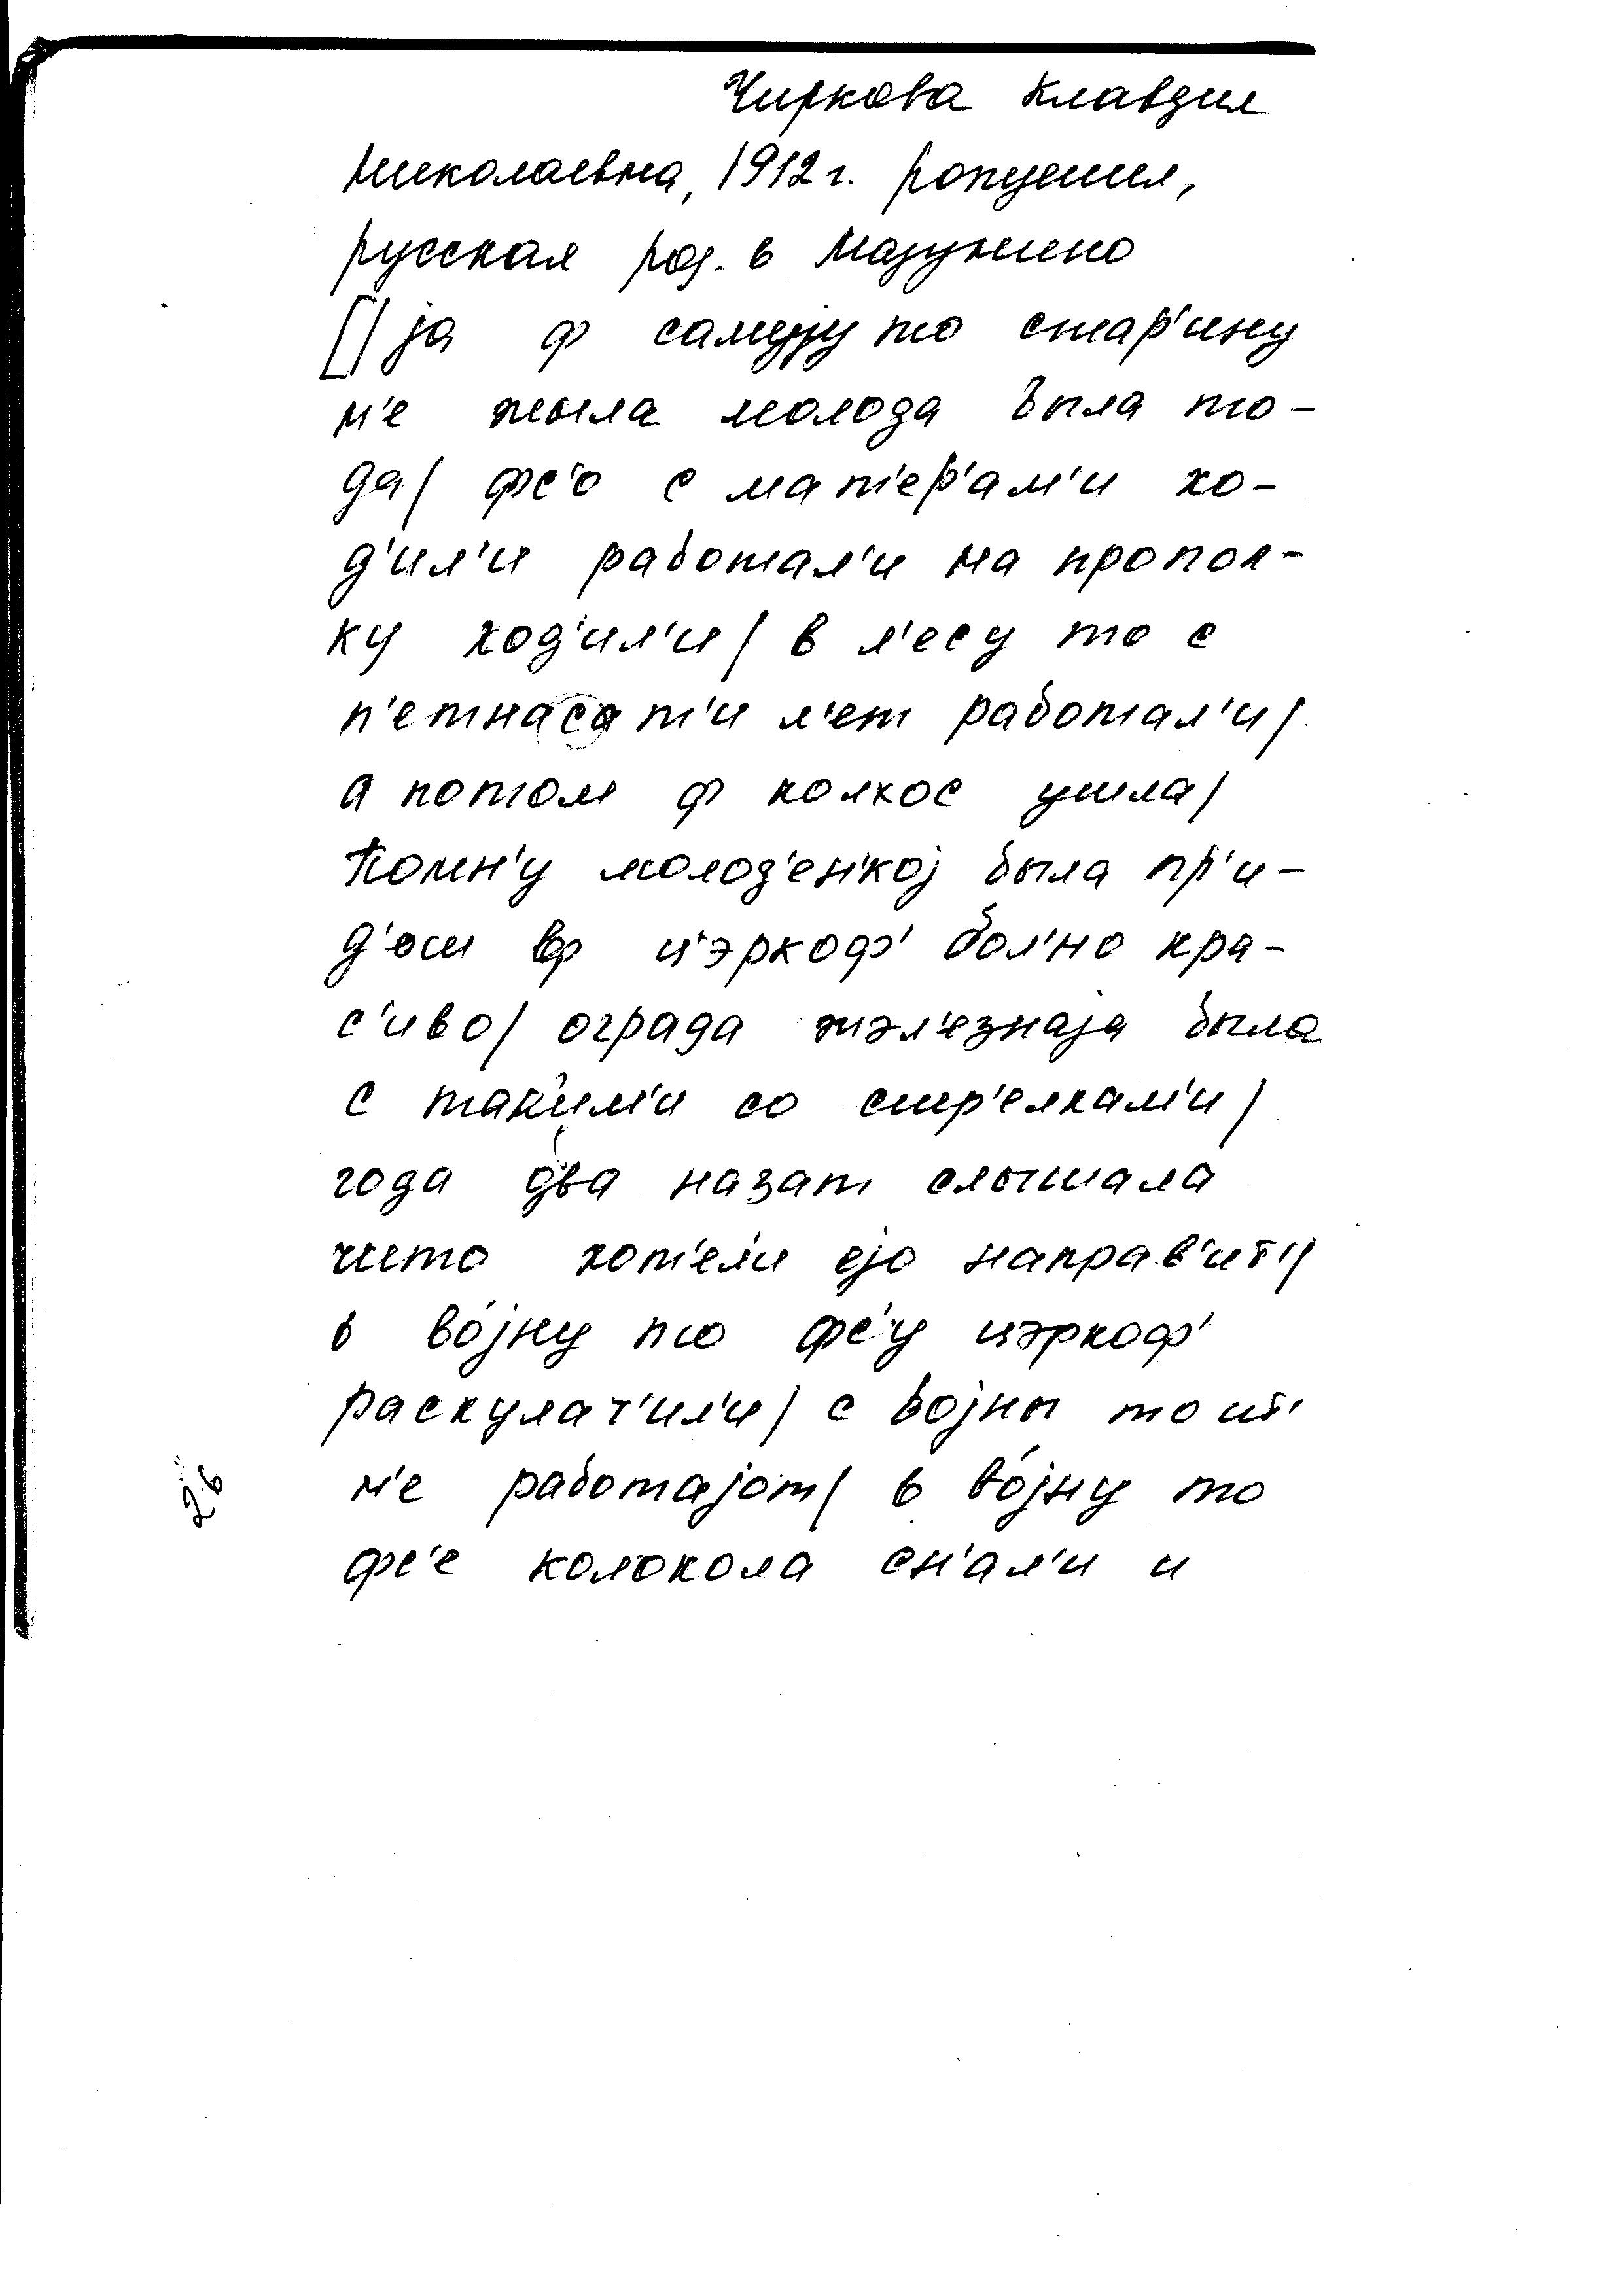 Чиркова Клавдия
Николаевна, 1912 г. рождения,
русская род. в Мазунино
[/ ја ф самују то стар'ину
н'е жыла молода была то-
да/ фс'о с мат'ер'ам'и хо-
д'ил'и работал'и на пропол-
ку ход'ил'и/ в л'есу то с
п'етнасат'и л'ет работал'и/
а потом ф колхос ушла/
помн'у молод'ен'кој была пр'и-
д'ош ф цэркоф' бол'но кра-
с'иво/ ограда жэл'езнаја была
с так'им'и со стр'елкам'и/
года два назат слышала
што хот'ел'и ејо направ'ит'/
в во́јну то фс'у цэркоф'
раскулач'ил'и/ с војны то ит'
н'е работајот/ в во́јну то
фс'е колокола сн'ал'и и
26